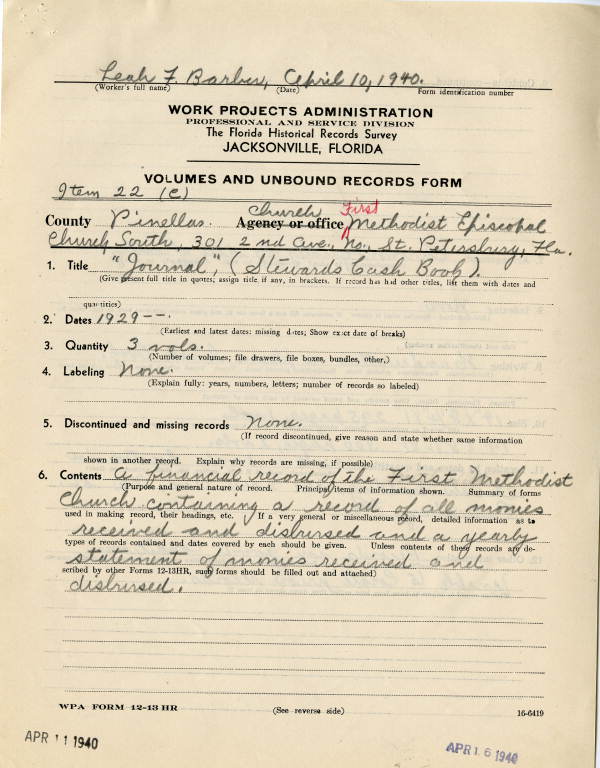 Leah F. Barber, April 10, 1940.
(Worker's full name) (Date) Form identification number
WORK PROJECTS ADMINISTRATION
PROFESSIONAL AND SERVICE DIVISION
The Florida Historical Records Survey
JACKSONVILLE, FLORIDA
VOLUMES AND UNBOUND RECORDS FORM
Item 22 (c)
County Pinellas. Agency or office Church First Methodist Episcopal
Church South, 301 2nd Ave., No., St. Petersburg, Fla.
1. Title "Journal", (Stewards Cash Book).
(Give present full title in quotes; assign title if any, in brackets. If record has had other titles, list them with dates and
quantities)
2. Dates 1929 --.
(Earliest and latest dates: missing dates; Show exact date of breaks)
3. Quantity 3 vols.
(Number of volumes; file drawers, file boxes, bundles, other,)
4. Labeling None.
(Explain fully: years, numbers, letters; number of records so labeled)
5. Discontinued and missing records None.
(If record discontinued, give reason and state whether same information
shown in another record. Explain why records are missing, if possible)
6. Contents A financial record of the First Methodist
(Purpose and general nature of record. Principal items of information shown. Summary of forms
Church containing a record of all monies
used in making record, their headings, etc. If a very general or miscellaneous record, detailed information as to
received and disbursed and a yearly
types of records contained and dates covered by each should be given. Unless contents of these records are de-
statement of monies received and
scribed by other Forms 12-13HR, such forms should be filled out and attached)
disbursed.
WPA FORM 12-13 HR (See reverse side) 16-6419
APR 11 1940 APR 16 1940